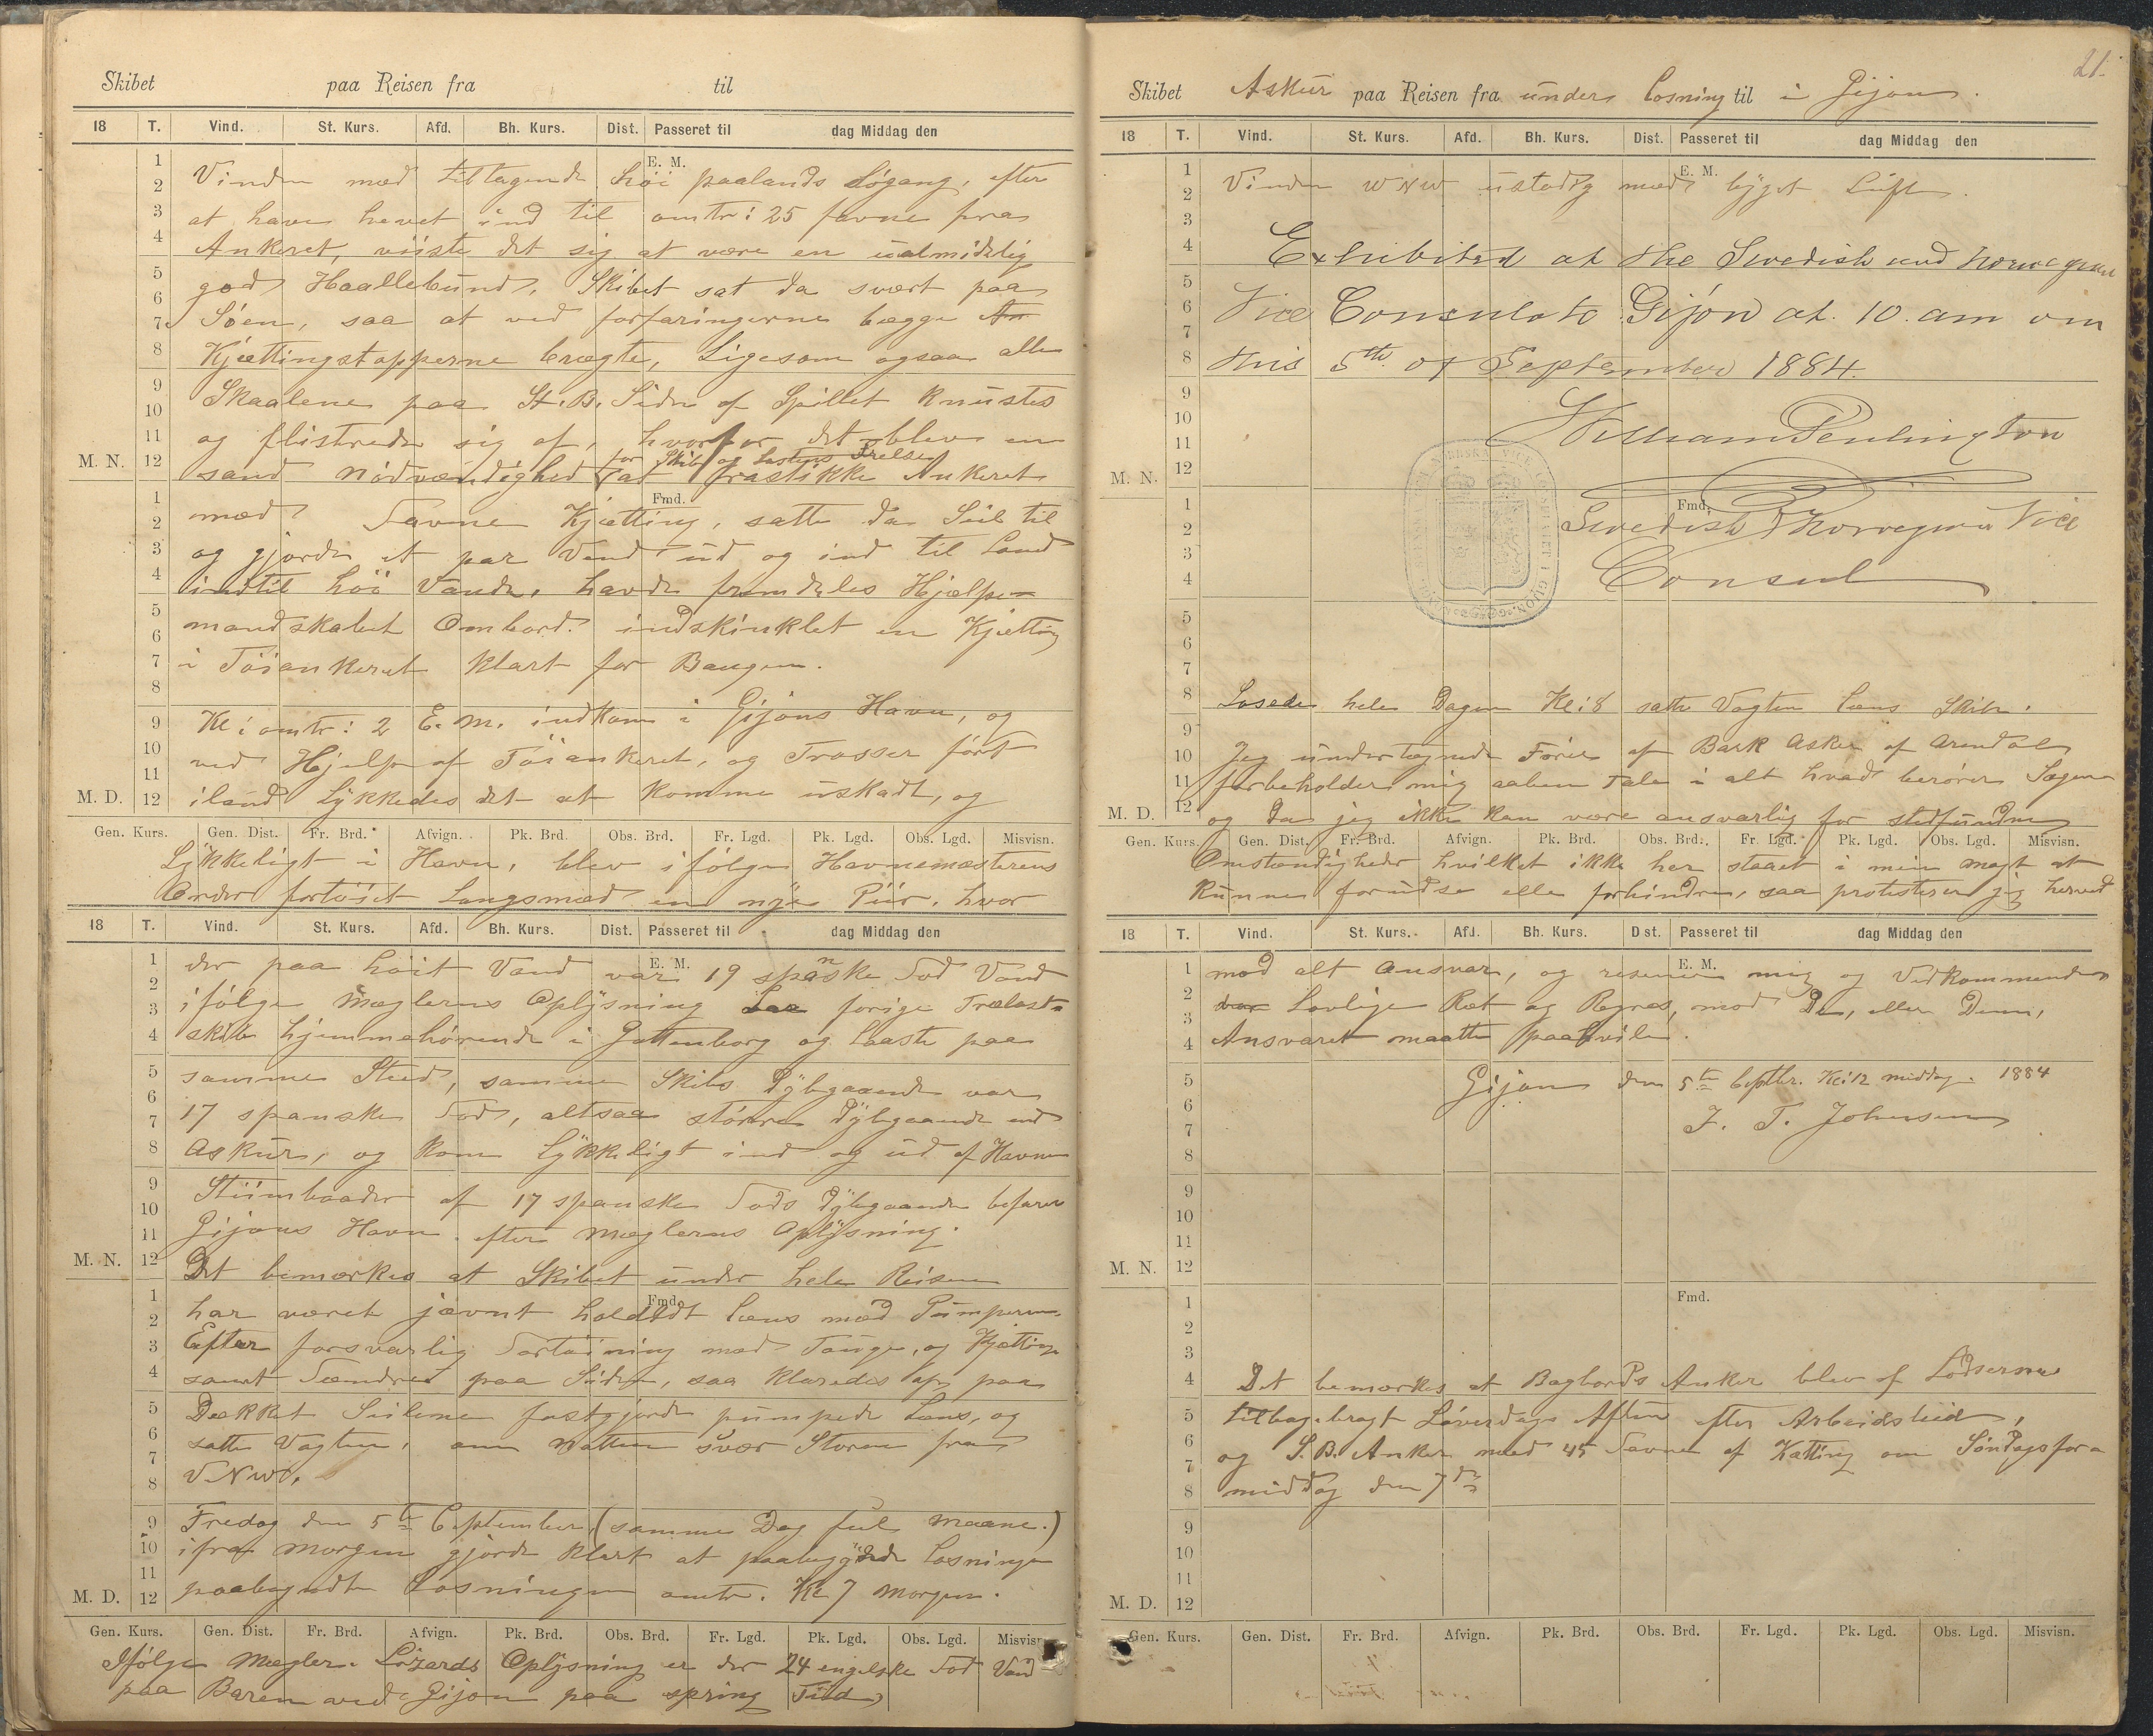 Skibet paa Reisen fra til
18 T. Vind. St. Kurs. Afd. Bh. Kurs. Dist. Passeret til dag Middag den
E. M.
Vinden med tiltagende høi paalands Søgang, efter
at have hevet ind til omtr: 25 favne fra
Ankeret, viiste det sig at være en ualmidelig
god Haallebund. Skibet sat da svært paa
Søen, saa at ved forfaringerne begge An
Kjættingstopperne brægte, Ligesom ogsaa alle
Skaalene paa St.B. Side af Spillet knustes
og flistrede sig af, hvorfor det blev en
for Skib og Lastens Frelse
M. N. sand Nødvændighed at frastikke Ankeret
Fmd.
med ? Favne Kjætting, satte da Seil til
og gjorde et par Vend ud og ind til Land
indtil høi Vande, havde fremdeles Hjælpe-
mandskabet Ombord. indskinklet en Kjætting
i Töiankeret klart for Baugen.
Kl: omtr: 2 E. M. indkom i Gijons Havn, og
ved Hjelp af Töiankeret, og Trosser ført
M. D. iland Lykkedes det at komme uskadt, og
Gen. Kurs. Gen. Dist. Fr. Brd. Afvign. Pk. Brd. Obs. Brd. Fr. Lgd. Pk. Lgd. Obs. Lgd. Misvisn.
Lykkeligt i Havn, blev ifølge Havnemæsterens
Order fortöiet Langsmed en nye Piir, hvor
18 T. Vind. St. Kurs. Afd. Bh. Kurs. Dist. Passeret til dag Middag den
E. M.
der paa høit Vand var 19 spanske Fod Vand
ifølge Mæglerens Oplysning forige Trælast-
skib hjemmehørende i Gottenborg og Laaste paa
samme Sted, samme Skibs Dybgaaende var
17 spanske Fod, altsaa større Dybgaaende end
Askur, og kom Lykkeligt ind og ud af Havnen
Stiimbaader af 17 spanske Fods Dybgaaende befarer
Gijons Havn. efter Mæglerens Oplysning.
M. N. Det bemærkes at Skibet under hele Reisen
Fmd.
har været jævnt holdedt Læns med Pumperne.
Efter forsvarlig Fortöining med Touge, og Kjættinge
samt Fændret paa Siden, saa klaredes op paa
Dækket Seilene fastgjorde pumpede Læns, og
satte Vagten, om Natten svær Storm fra
V.N.W.
Fredag den 5te September, (samme Dag ful Maane.)
ifra Morgen gjorde klart at paabegynde Losningen
M. D. paabegyndte Losningen omtr. Kl 7 Morgen.
Gen. Kurs. Gen. Dist. Fr. Brd. Afvign. Pk. Brd. Obs. Brd. Fr. Lgd. Pk. Lgd. Obs. Lgd. Misvisn.
Ifølge Mægler Oplysning er der 24 engelske Fod Vand
paa Baren ved Gijon paa spring Tiid
21.
Skibet Askur paa Reisen fra under Losning til i Gijon.
18 T. Vind. St. Kurs. Afd. Bh. Kurs. Dist. Passeret til dag Middag den
E. M.
Vinden WNW ustadig med byget Luft.
Exhibited at the Swedish and Norwegian
Vice Consulate Gijon at 10. am on
this 5th of September 1884.
William Penlington
M. N.
Fmd.
Swedish & Norwegian Vice
Consul
Losede hele Dagen Kl: 8 satte Vagten læns Skib.
Jeg undertegnede Fører af Bark Askur af Arendal
forbeholder mig aaben Tale i alt hvad berører Sagen
M. D. og da jeg ikke kan være ansvarlig for stedfundne
Gen. Kurs. Gen. Dist. Fr. Brd. Afvign. Pk. Brd. Obs. Brd. Fr. Lgd. Pk. Lgd. Obs. Lgd. Misvisn.
Omstændigheder hvilket ikke her staaet i min Magt at
kunne forudse elle forhindre, saa protesterer jeg herved
18 T. Vind. St. Kurs. Afd. Bh. Kurs. Dist. Passeret til dag Middag den
E. M.
mod alt Ansvar, og reserverer mig og Vedkommende
Lovlige Ret og Regres, mod De, eller Denn,
Ansvaret maatte paahvile.
Gijon den 5te Septbr. Kl: 12 middag. 1884
J. T. Johnsen
M. N.
Fmd.
Det bemærkes at Bagbords Anker blev af Lodserne
tilbagebragt Löverdags Aften efter Arbeidstid,
og S.B. Anker med 45 Favne af Kætting om Söndagsfor-
middag den 7de
M. D.
Gen. Kurs. Gen. Dist. Fr. Brd. Afvign. Pk. Brd. Obs. Brd. Fr. Lgd. Pk. Lgd. Obs. Lgd. Misvisn.